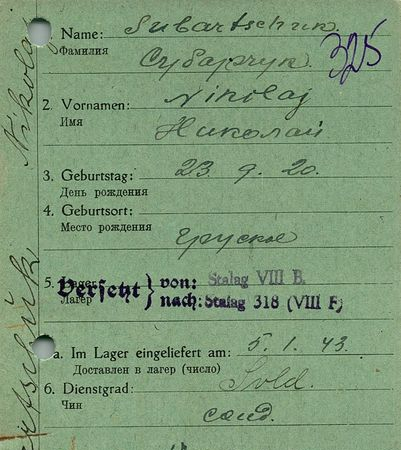 Name: Subartschuk
Фамилия
Субарчук
325
2. Vornamen: Nikolaj
Имя
Николай
3. Geburtstag: 23. 9. 20.
День рождения
4. Geburtsort:
Место рождения
5. Lager
Лагер
Versetzt } von: Stalag VIII B.
nach: Stalag 318 (VIII F)
a. Im Lager eingeliefert am: 5. 1. 43.
Доставлен в лагер (число)
6. Dienstgrad: Sold.
Чин
Nikolaj